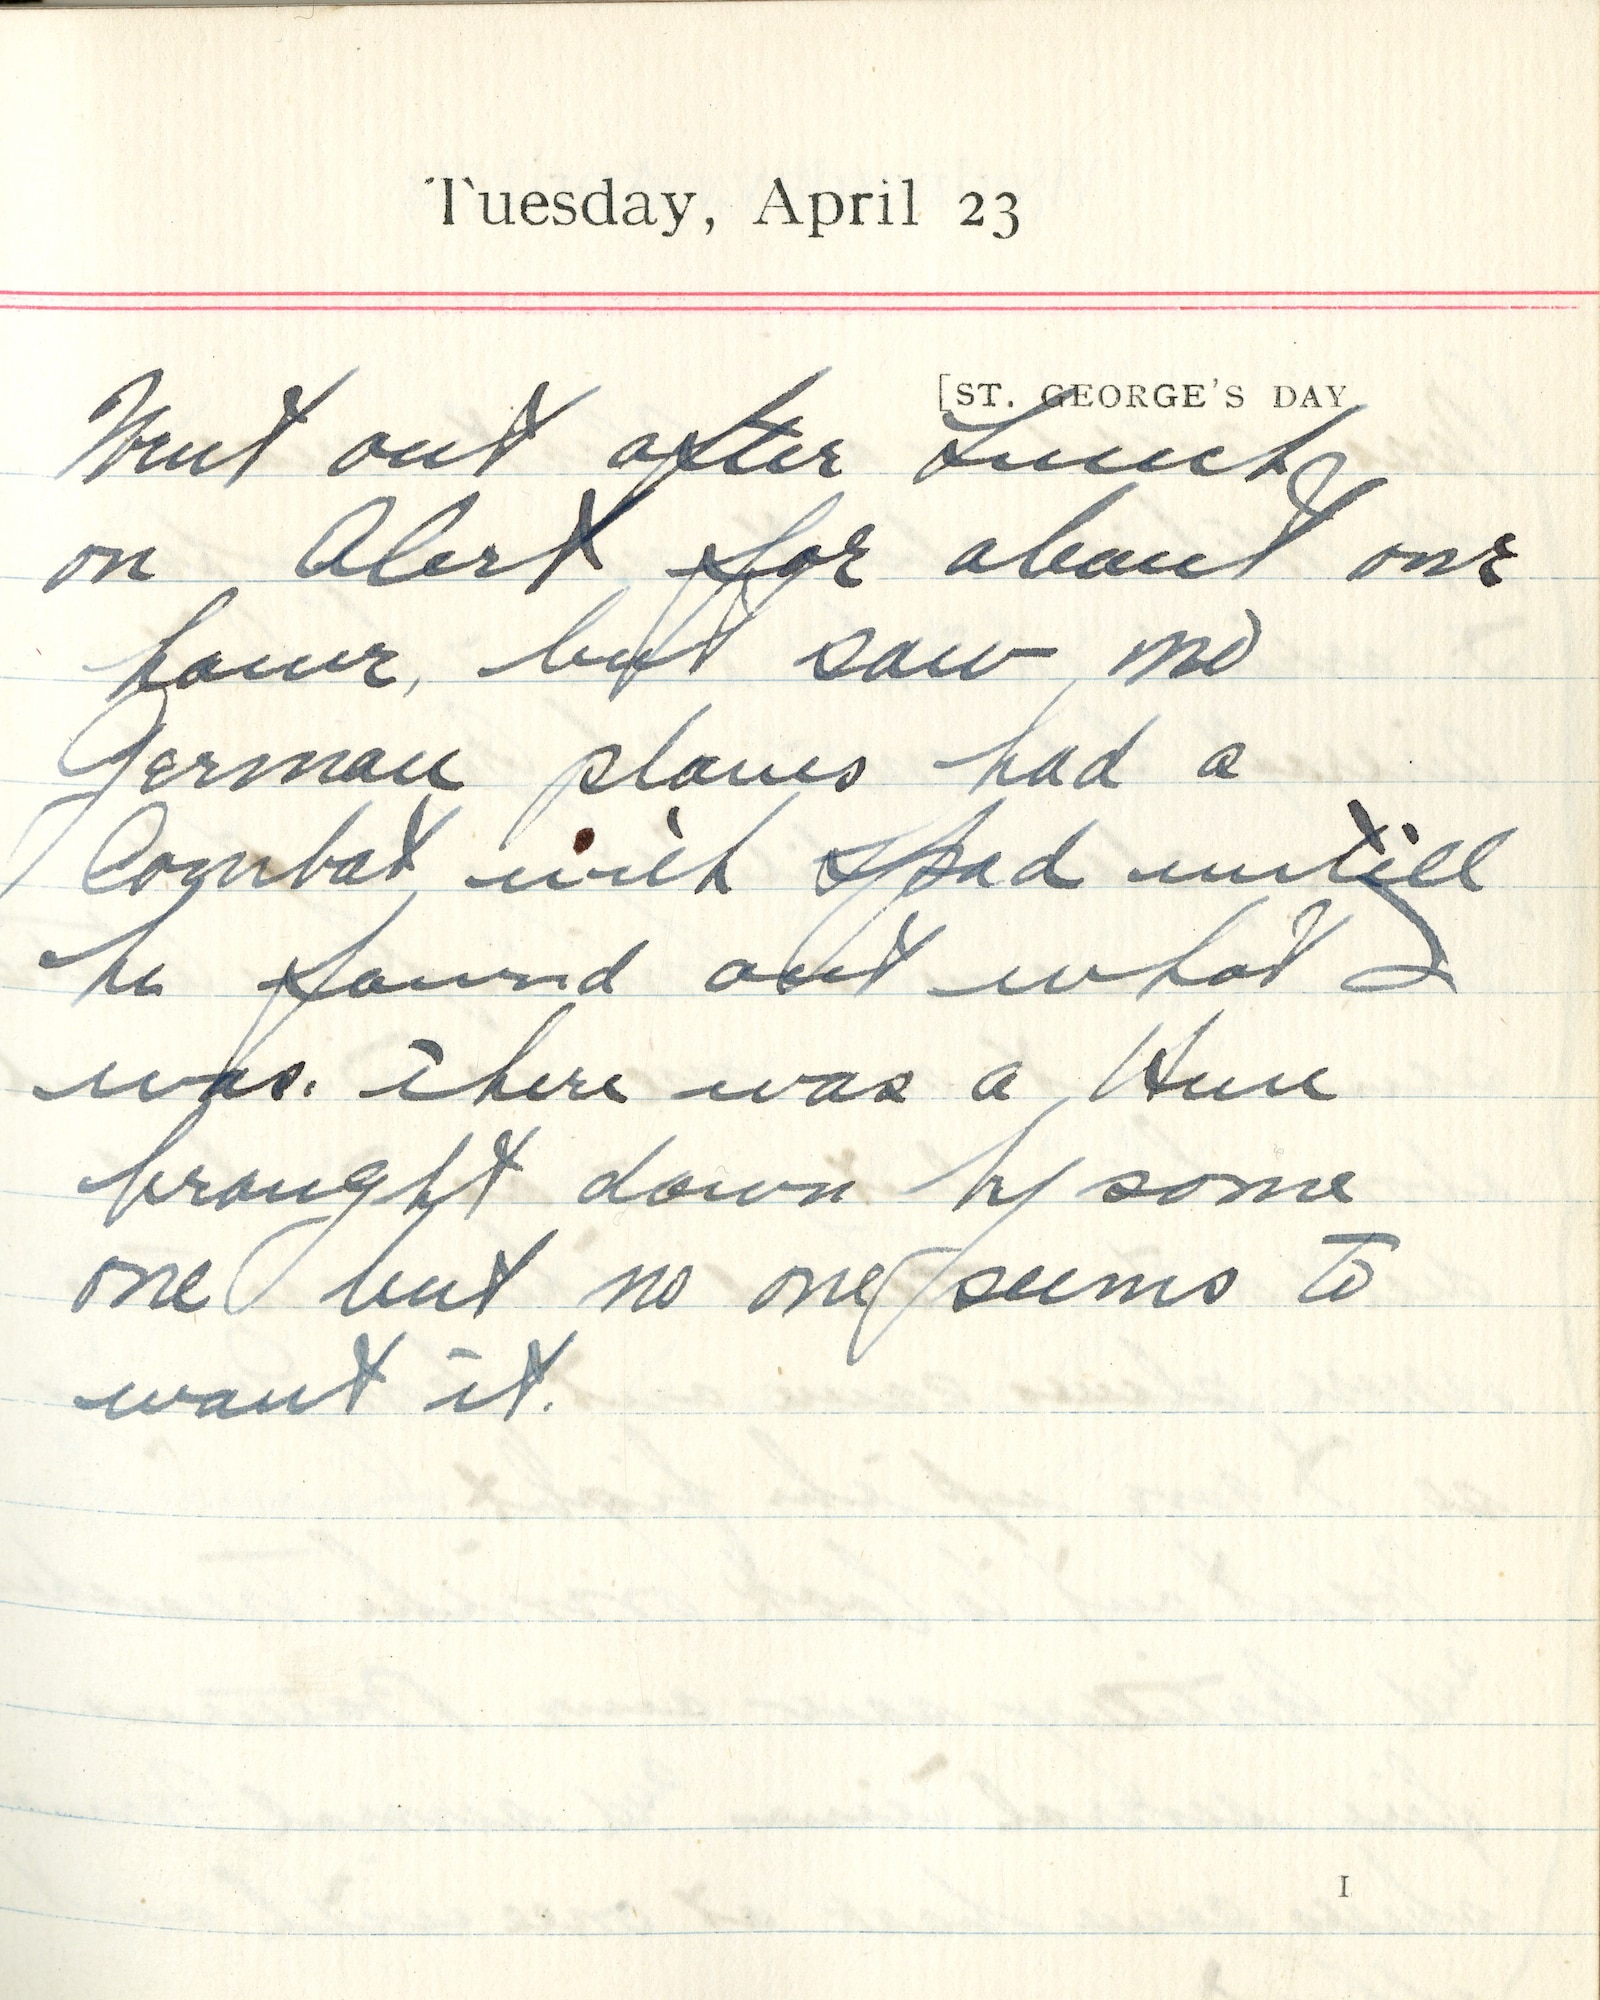 Tuesday, April 23
[ST. GEORGE'S DAY
Went out after Lunch
on Alert for about one
hour, but saw no
German planes had a
Combat with Spad untill
he found out what I
was. there was a Hun
brought down by some
one but no one seems to
want it.
I